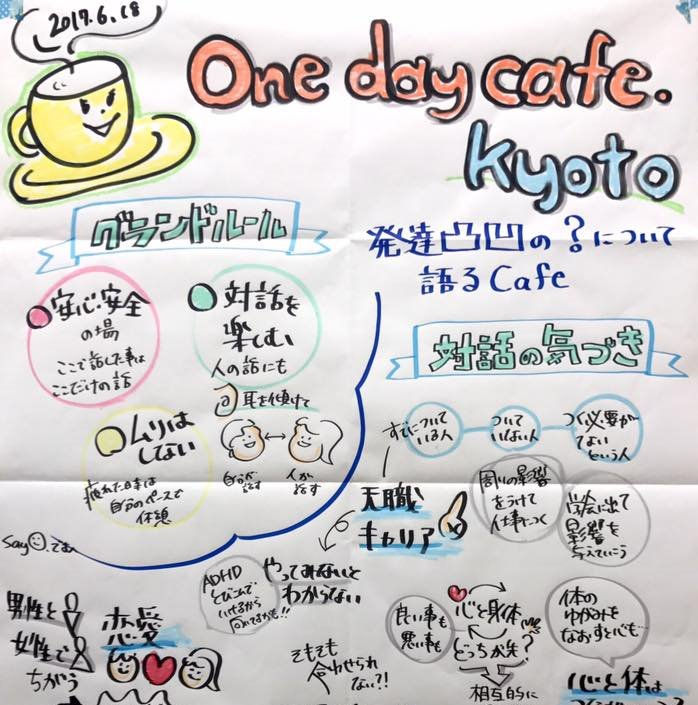 2017.6.18
One day cafe.
kyoto
グランドルール
発達凸凹の?について
語るCafe
安心・安全
の場
ここで話した事は
ここだけの話
対話を
楽しむ
人の話にも
耳を傾けて
自分が
話す
人が
話す
ムリは
しない
疲れた時は
自分のペースで
休憩
対話の気づき
すでについて
いる人
ついて
いない人
つく必要が
ない
という人
天職
キャリア
周りの影響
をうけて
仕事につく
影響を
与えていこう
ADHD
とびこんで
いけるから
やってみないと
わからない
男性と
女性で
ちがう
恋愛
そもそも
合わせられ
ない?!
良い事も
悪い事も
心と身体
どっちが先?
相互的に
体の
ゆがみを
なおすと心も…
心と体は